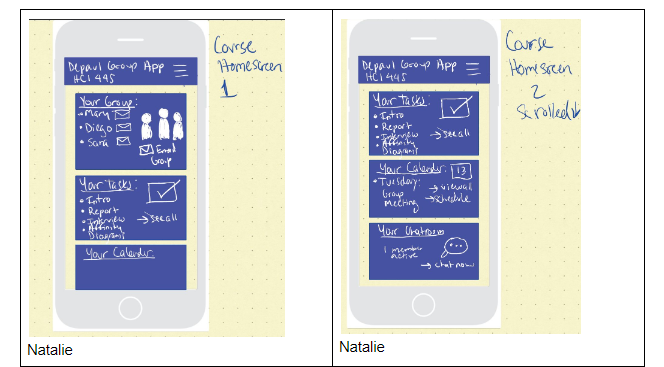 Depaul Group App
HCI 445
Your Group:
Mary
Diego
Sara
Email
Group
Your Tasks:
Intro
Report
Interview
Affinity
Diagrams
→ see all
Your Calendar
Course
Homescreen
1
Natalie
Depaul Group App
HCI 445
Your Tasks:
Intro
Report
Interview
Affinity
Diagrams
→ see all
Your Calendar:
13
Tuesday:
Group
Meeting
→ view all
→ schedule
Your Chatroom
1 member
active
→ chat now
Course
Homescreen
2
Scrolled↓
Natalie